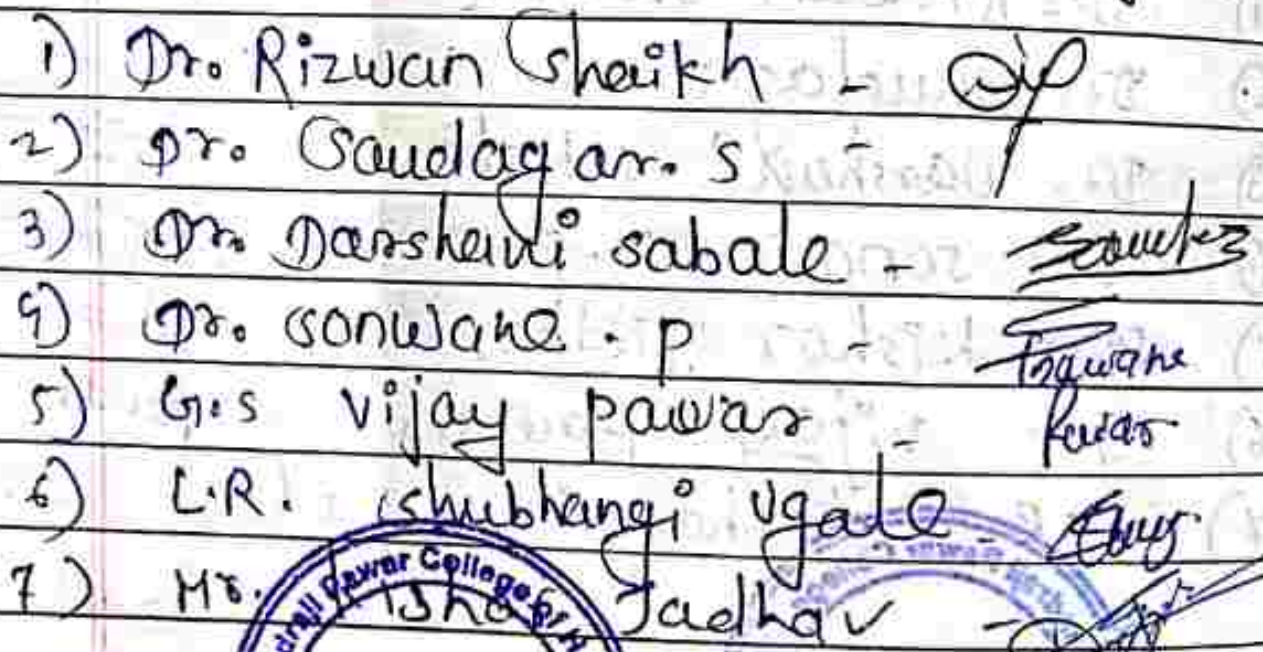 1) Dr. Rizwan Shaikh -
2) Dr. Saudagar. S -
3) Dr. Darshani Sabale -
4) Dr. Sonwane. P -
5) G.S Vijay Pawar - Pawar
6) L.R. Shubhangi Ugale -
7) Mr. Jadhav -
Pawar College of